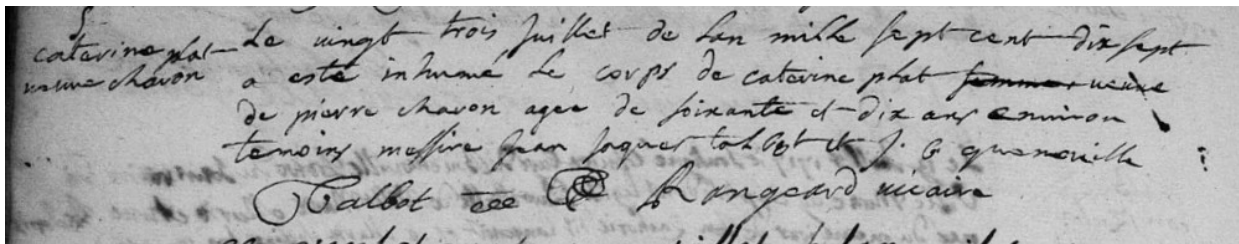 caterine plat
veuve chavon
Le vingt trois Juillet de Lan mille sept cent dix sept
a esté inhumé Le corps de caterine plat femme veuve
de pierre chavon agée de soixante et dix ans environ
temoins messire Jean Jaques talbot et J. G quenouille
Talbot Rangeard vicaire